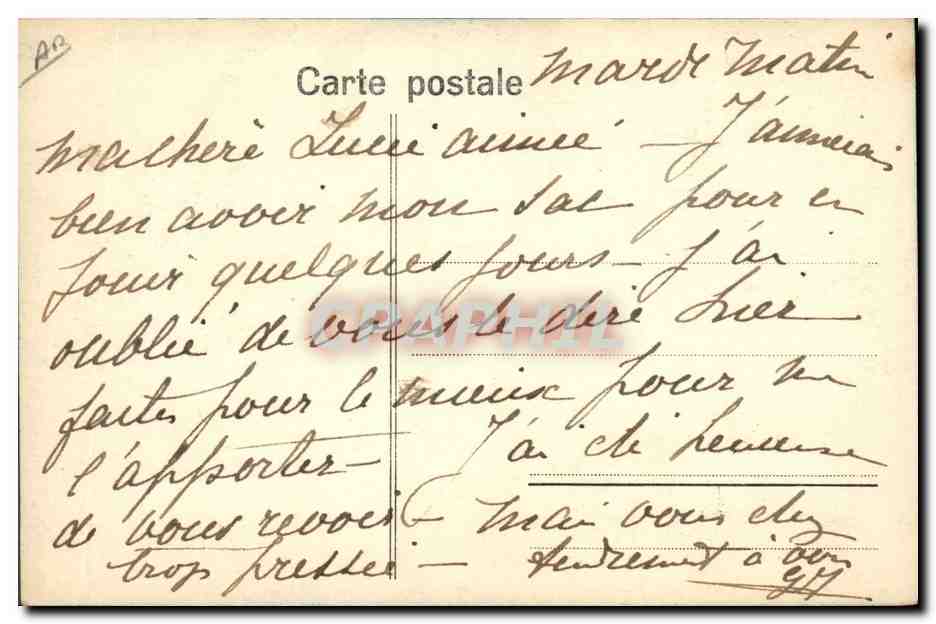 AB
Carte postale
mardi matin
ma chère Lucie aimée — J'aimerais
bien avoir mon sac pour en
jouir quelques jours — J'ai
oublié de vous le dire hier
faites pour le mieux pour me
l'apporter — J'ai été heureuse
de vous revoir — mais vous étiez
trop pressée — tendrement à vous
CPAPHIL